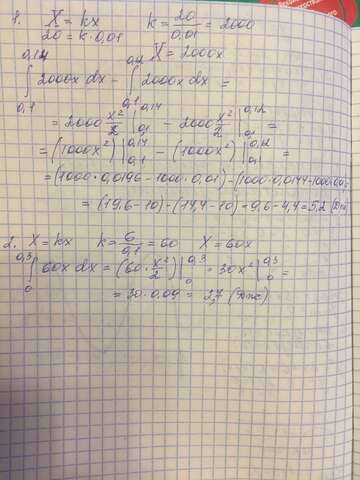 1. X = kx k = 20/0,01 = 2000
20 = k · 0,01 X = 2000x
∫_{0,1}^{0,14} 2000x dx - ∫_{0,1}^{0,12} 2000x dx =
= 2000 x²/2 |_{0,1}^{0,14} - 2000 x²/2 |_{0,1}^{0,12} =
= (1000x²) |_{0,1}^{0,14} - (1000x²) |_{0,1}^{0,12} =
= (1000 · 0,0196 - 1000 · 0,01) - (1000 · 0,0144 - 1000 · 0,0
= (19,6 - 10) - (14,4 - 10) = 9,6 - 4,4 = 5,2 (Дж)
2. X = kx k = 6/0,1 = 60 X = 60x
∫_{0}^{0,3} 60x dx = (60 · x²/2) |_{0}^{0,3} = 30x² |_{0}^{0,3} =
= 30 · 0,09 = 2,7 (Дж)